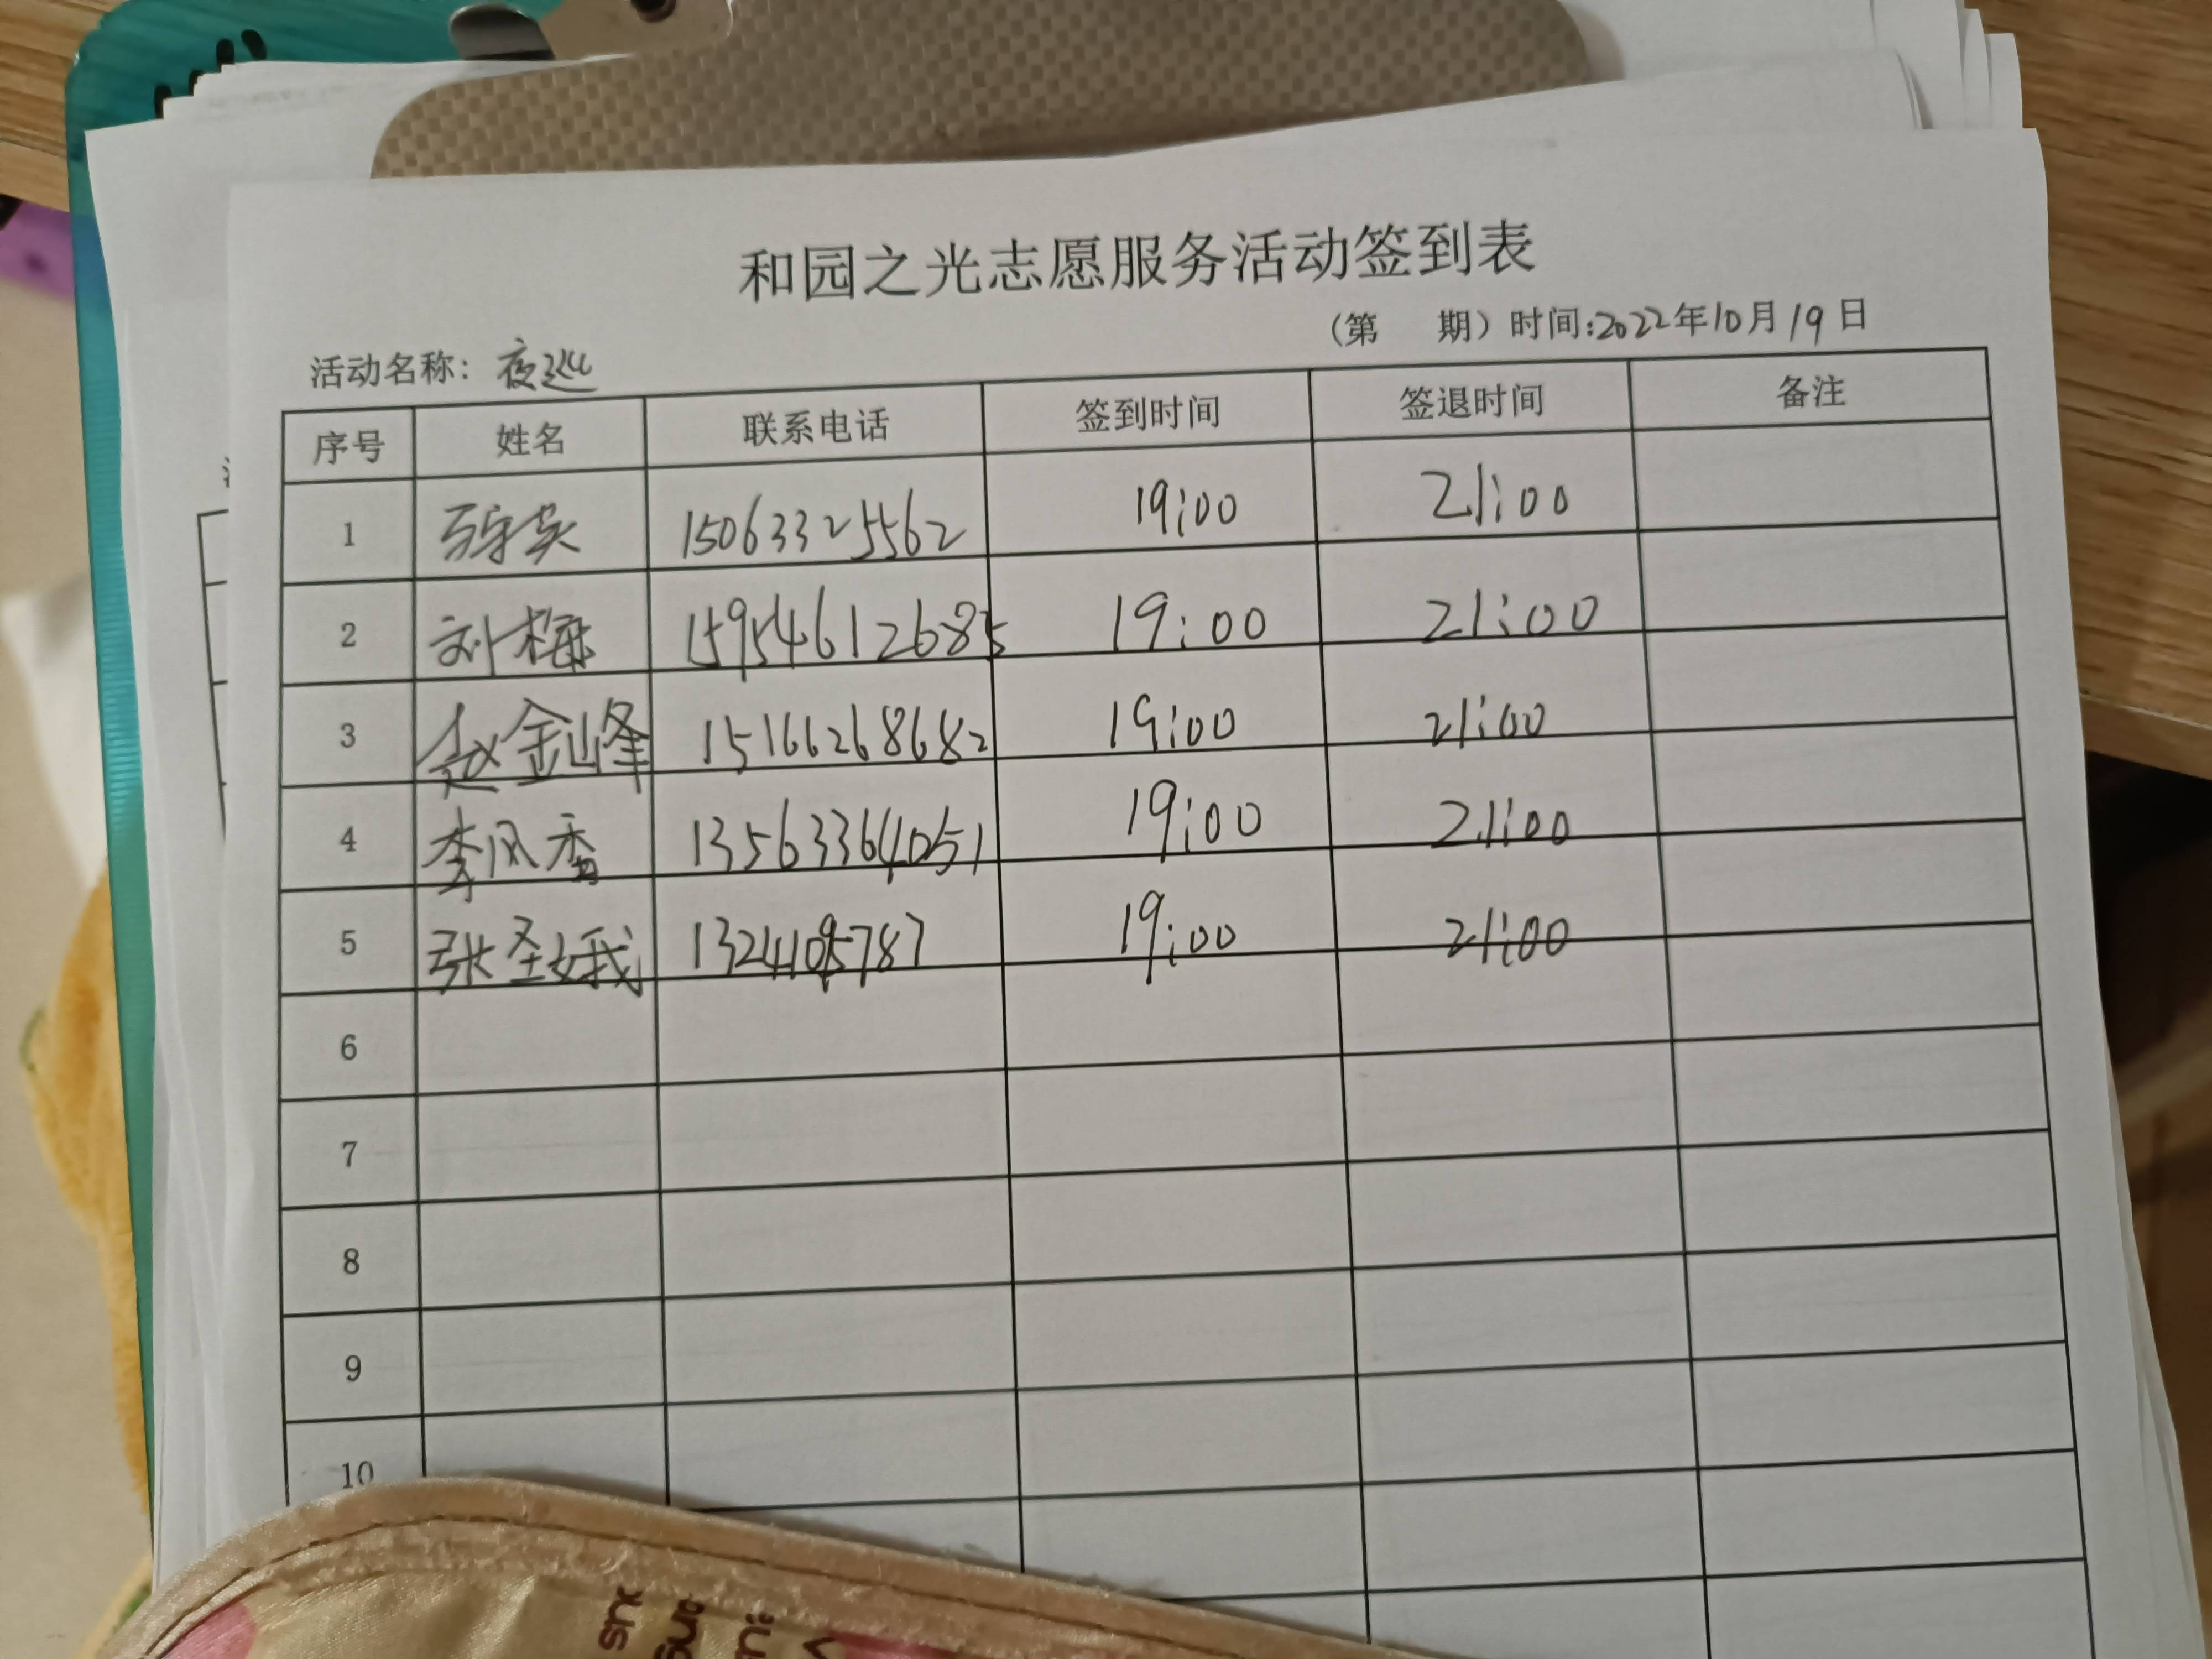 和园之光志愿服务活动签到表
(第 期) 时间:2022年10月19日
活动名称: 夜巡
序号 姓名 联系电话 签到时间 签退时间 备注
1 15063325562 19:00 21:00
2 刘梅 15954612685 19:00 21:00
3 赵金峰 15166268682 19:00 21:00
4 李风香 13563364051 19:00 21:00
5 张圣娥 19:00 21:00
6
7
8
9
10